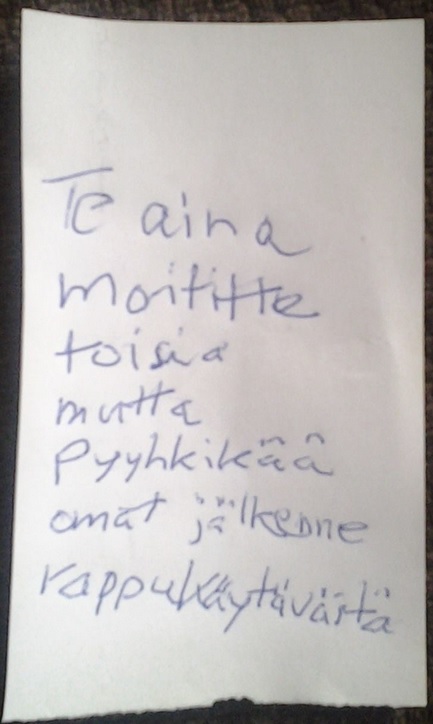 Te aina
moititte
toisia
mutta
Pyyhkikää
omat jälkenne
rappukäytävästä